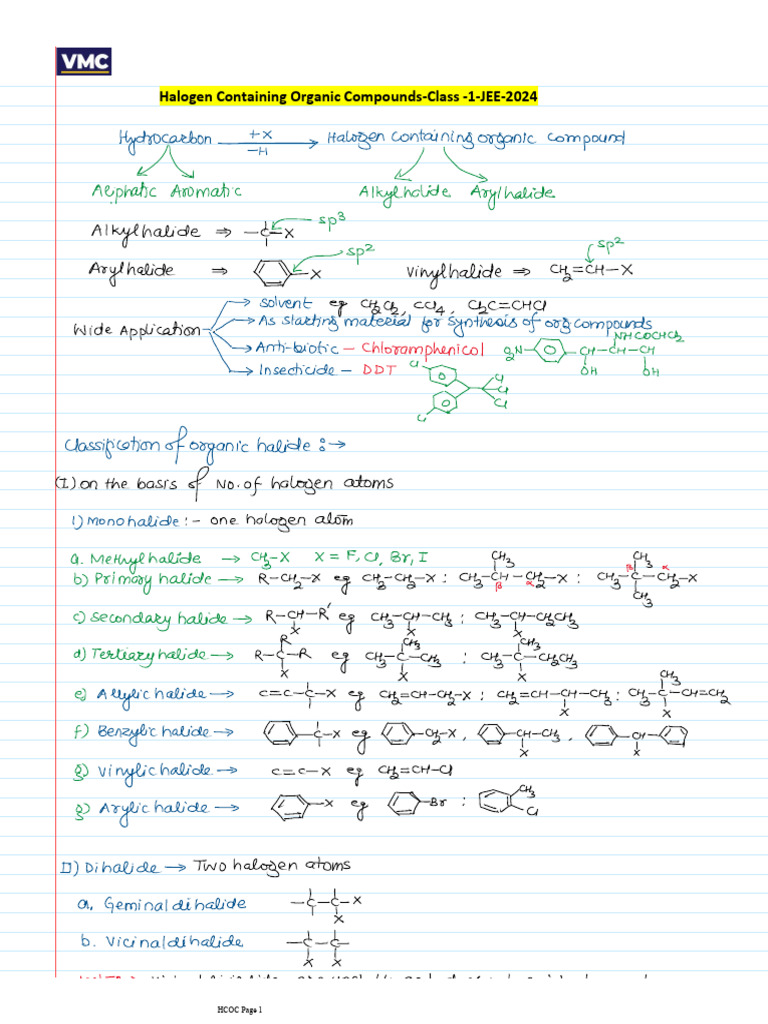 VMC
Halogen Containing Organic Compounds-Class -1-JEE-2024
Hydrocarbon +X -H → Halogen containing organic compound
Aliphatic Aromatic Alkylhalide Arylhalide
Alkylhalide ⇒ -C-X sp3
Arylhalide ⇒ X sp2 Vinylhalide ⇒ CH2=CH-X sp2
Wide Application
→ solvent eg CH2Cl2, CCl4, Cl2C=CHCl
→ As starting material for synthesis of org compounds
→ Anti-biotic - Chloramphenicol O2N- -CH-CH-CH NHCOCHCl2 OH OH
→ Insecticide - DDT Cl Cl Cl Cl Cl
Classification of organic halide :→
(I) on the basis of No. of halogen atoms
1) Monohalide :- one halogen atom
a. Methylhalide → CH3-X X = F, Cl, Br, I
b) Primary halide → R-CH2-X eg CH3-CH2-X : CH3-CH-CH2-X CH3 β α : CH3-C-CH2-X CH3 CH3 β α
c) Secondary halide → R-CH-R' X eg CH3-CH-CH3 X : CH3-CH-CH2CH3 X
d) Tertiary halide → R-C-R R X eg CH3-C-CH3 CH3 X : CH3-C-CH2CH3 CH3 X
e) Allylic halide → C=C-C-X eg CH2=CH-CH2-X : CH2=CH-CH-CH3 X : CH3-C-CH=CH2 CH3 X
f) Benzylic halide → C-X eg CH2-X , CH-CH3 X , CH X
g) Vinylic halide → C=C-X eg CH2=CH-Cl
g) Arylic halide → X eg Br : CH3 Cl
II) Dihalide → Two halogen atoms
a. Geminal dihalide -C-C-X X
b. Vicinal dihalide -C-C- X X
HCOC Page 1